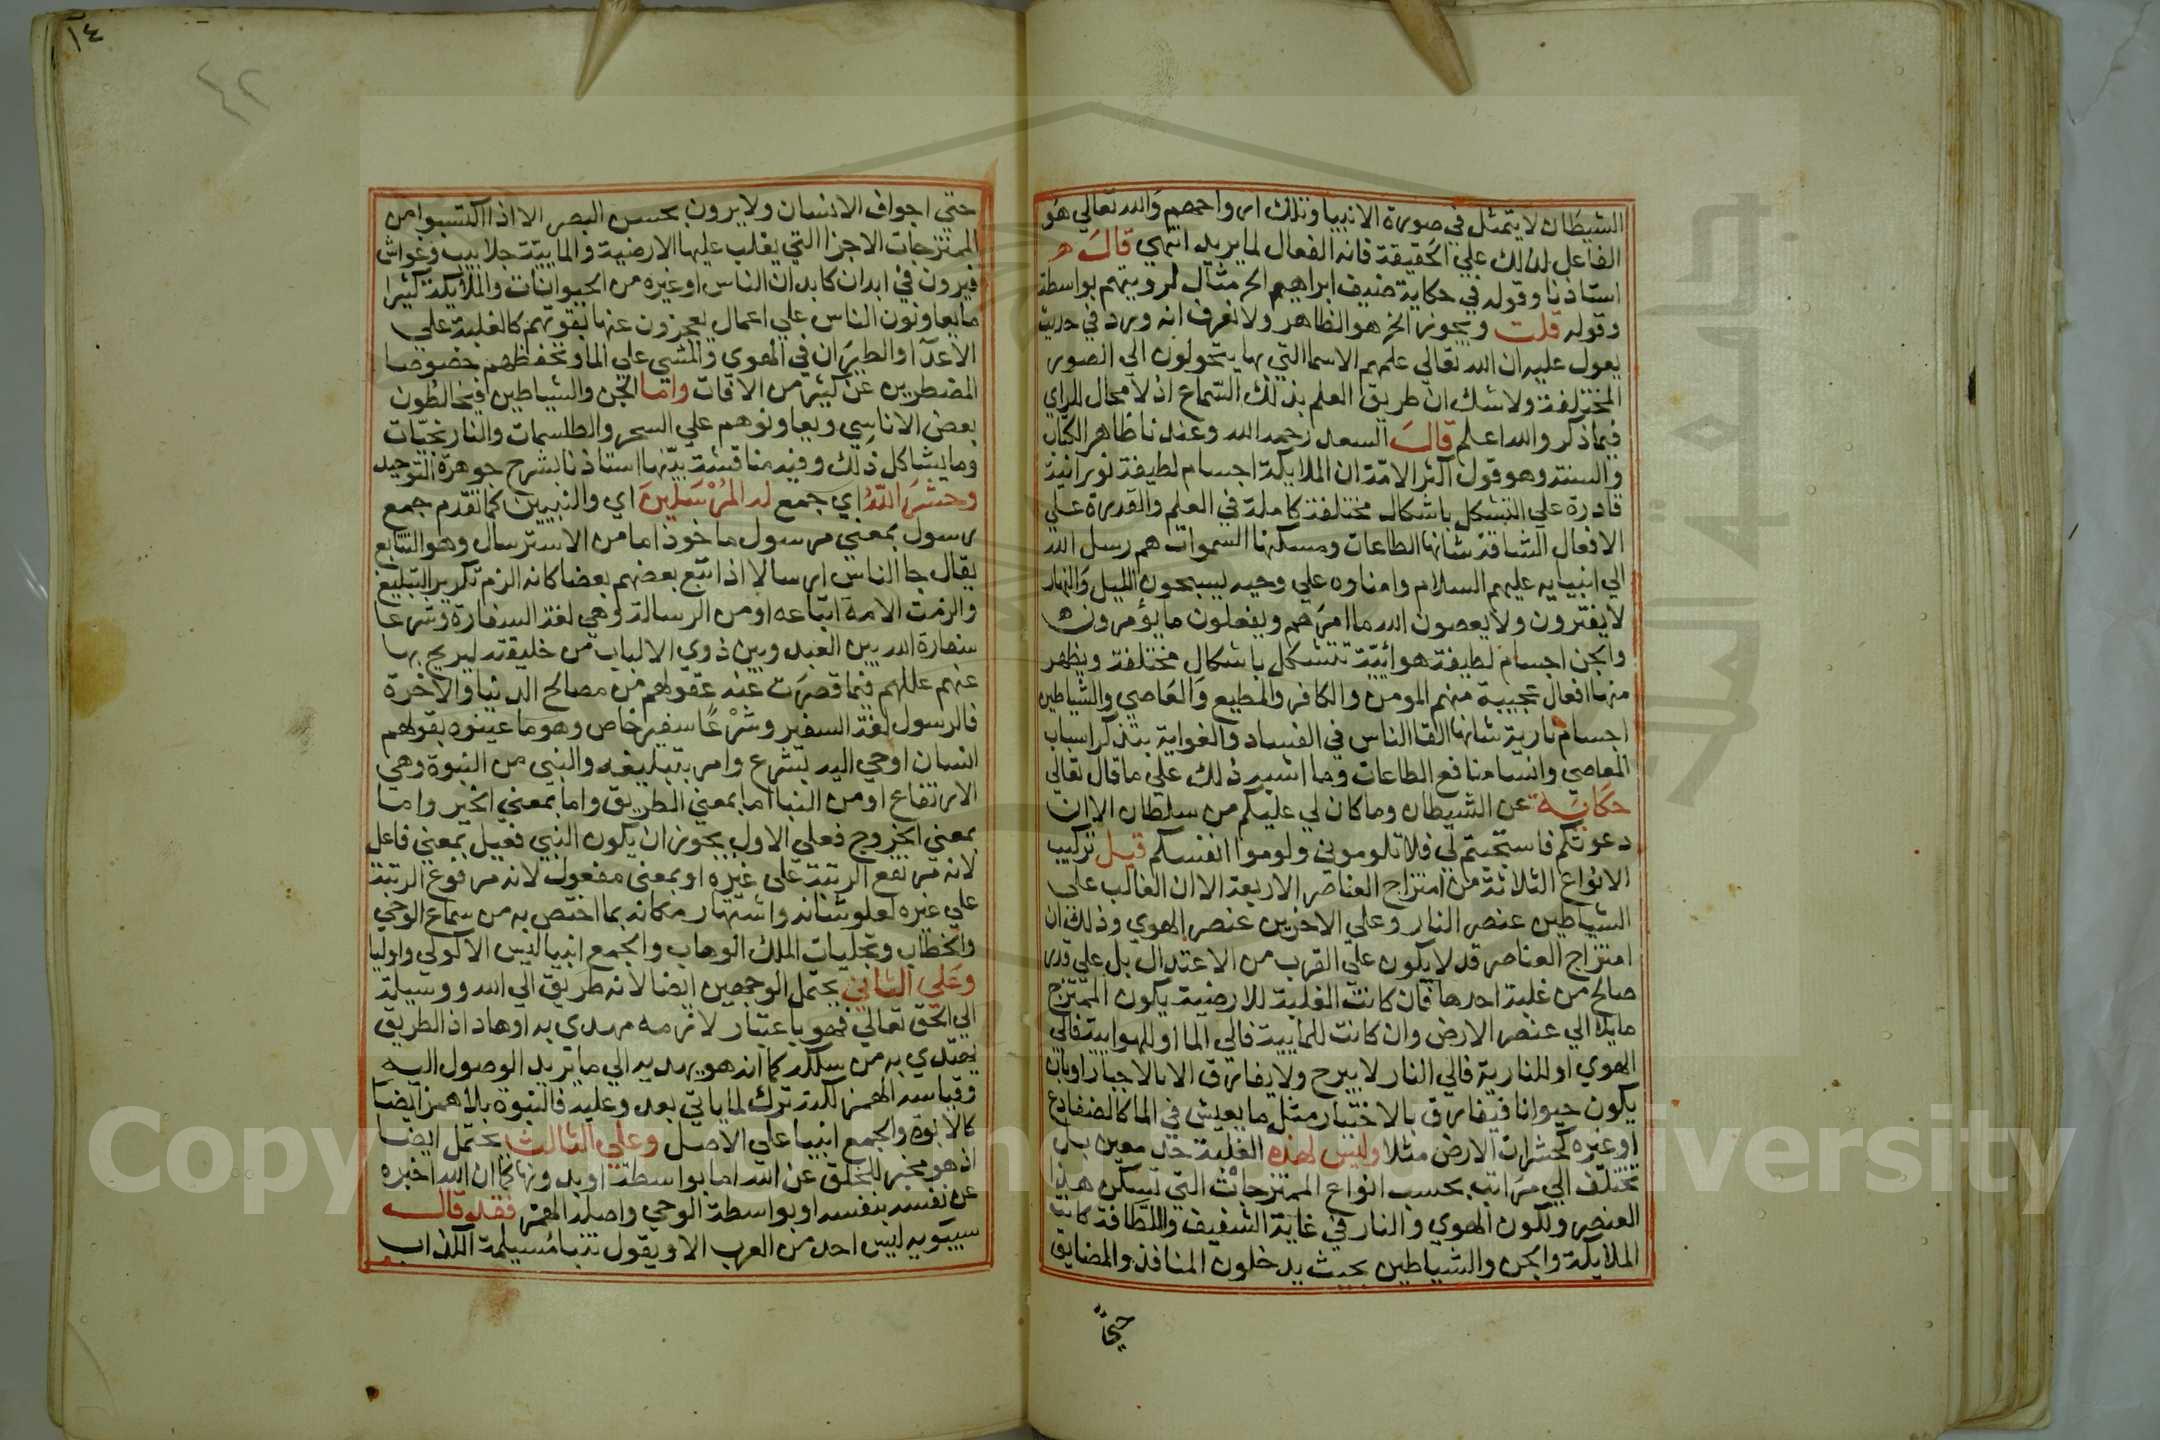 الشيطان لا يتمثل في صورة الانبيا وتلك ارواحهم والله تعالي هو
الفاعل لذلك علي الحقيقة فانه الفعال لما يريد انتهي قال
استاذنا وقوله في حكاية ضيف ابراهيم الخ مثال لرويتهم بواسطة
وقوله قلت ويجوز الخ هو الظاهر ولا نعرف انه ورد في حديث
يعول عليه ان الله تعالي علمهم الاسما التي بها يتحولون الي الصور
المختلفة ولا شك ان طريق العلم بذلك السماع اذ لا مجال للراي
فيما ذكر والله اعلم قال السعد رحمه الله وعندنا ظاهر الكتاب
والسنة وهو قول اكثر الامة ان الملايكة اجسام لطيفة نورانية
قادرة علي التشكل باشكال مختلفة كاملة في العلم والقدرة علي
الافعال الشاقة شانها الطاعات ومسكنها السموات هم رسل الله
الي انبيايه عليهم السلام وامناوه علي وحيه يسبحون الليل والنهار
لا يفترون ولا يعصون الله ما امرهم ويفعلون ما يؤمرون
والجن اجسام لطيفة هوائية تتشكل باشكال مختلفة ويظهر
منها افعال عجيبة منهم المومن والكافر والمطيع والعاصي والشياطين
اجسام نارية شانها القا الناس في الفساد والغواية بتذكر اسباب
المعاصي وانسا منافع الطاعات وما اشبه ذلك علي ما قال تعالي
حكاية عن الشيطان وما كان لي عليكم من سلطان الا ان
دعوتكم فاستجبتم لي فلا تلوموني ولوموا انفسكم قيل تركيب
الانواع الثلاثة من امتزاج العناصر الاربعة الا ان الغالب علي
الشياطين عنصر النار وعلي الاخرين عنصر الهوي وذلك ان
امتزاج العناصر قد لا يكون علي القرب من الاعتدال بل علي قدر
صالح من غلبة احدها فان كانت الغلبة للارضية يكون الممتزج
مايلا الي عنصر الارض وان كانت للماييه فالي الما او للهوايية فالي
الهوي او للنارية فالي النار لا يبرح ولا يفارق الا بالاجبار او بان
يكون حيوانا فيفارق بالاختيار مثل ما يعيش في الما كالضفادع
او غيره كحشرات الارض مثلا وليس لهذه الغلبة حد معين بل
تختلف الي مراتب بحسب انواع الممتزجات التي تسكن هذا
العنصر ولكون الهوي والنار في غاية الشفيف واللطافة كانت
الملايكة والجن والشياطين بحيث يدخلون المنافذ والمضايق
١٤
٤٢
حتي اجواف الانسان ولا يرون بحسن البصر الا اذا اكتسبوا من
الممتزجات الاجزا التي يغلب عليها الارضية والمايية جلابيب وغواش
فيرون في ابدان كابدان الناس او غيره من الحيوانات والملايكة كثيرا
ما يعاونون الناس علي اعمال يعجزون عنها بقوتهم كالغلبة علي
الاعدا والطيران في الهوي والمشي علي الما وتحفظهم خصوصا
المضطرين عن كثير من الافات واما الجن والشياطين فيخالطون
بعض الاناسي ويعاونوهم علي السحر والطلسمات والنارنجيات
وما يشاكل ذلك وفيه مناقشة بينها استاذنا بشرح جوهرة التوحيد
وحشر الله اي جمع له المرسلين اي والنبيين كما تقدم جمع
رسول بمعني مرسول ماخوذ اما من الاسترسال وهو التتابع
يقال جا الناس ارسالا اذا اتبع بعضهم بعضا كانه الزم تكرير التبليغ
والزمت الامة اتباعه او من الرسالة وهي لغة السفارة وشرعا
سفارة الله بين العبد وبين ذوي الالباب من خليقته ليريح بها
عنهم عللهم فيما قصرت عنه عقولهم من مصالح الدنيا والاخرة
فالرسول لغة السفير وشرعًا سفير خاص وهو ما عينوه بقولهم
انسان اوحي اليه بشرع وامر بتبليغه والنبي من النبوة وهي
الارتفاع او من النبا اما بمعني الطريق واما بمعني الخبر واما
بمعني الخروج فعلي الاول يجوز ان يكون النبي فعيل بمعني فاعل
لانه مرتفع الرتبة علي غيره او بمعني مفعول لانه مرفوع الرتبة
علي غيره لعلو شانه واشتهار مكانه بما اختص به من سماع الوحي
والخطاب وتجليات الملك الوهاب والجمع انبيا ليس الا كولي واوليا
وعلي الثاني يحتمل الوجهين ايضا لانه طريق الي الله ووسيلة
الي الحق تعالي فهو باعتبار لازمه مهدي به او هاد اذ الطريق
يهتدي به من سلكه كما انه هو يهديه الي ما يريد الوصول اليه
وقياسه الهمز لكنه ترك لما ياتي بعد وعليه فالنبوة بلا همز ايضا
كالابوة والجمع انبيا علي الاصل وعلي الثالث يحتمل ايضا
اذ هو مخبر للخلق عن الله اما بواسطة او بدونها كما ان الله اخبره
عن نفسه بنفسه او بواسطة الوحي واصله الهمز فقد قال
سيبويه ليس احد من العرب الا ويقول تنبا مسيلمة الكذاب